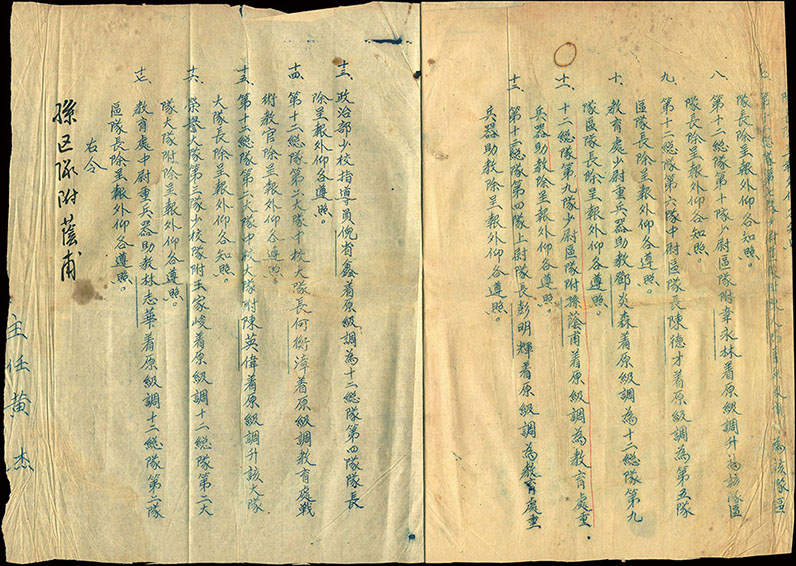 隊長除呈報外仰各知照
八、第十二總隊第十隊少尉區隊附韋永林着原級調升為該隊區
隊長除呈報外仰各知照
九、第十二總隊第六隊中尉區隊長陳德才着原級調為第五隊
區隊長除呈報外仰各知照。
十、教育處少尉重兵器助教鄧炎森着原級調為十二總隊第九
隊區隊長除呈報外仰各遵照。
十一、十二總隊第九隊少尉區隊附孫蔭甫着原級調為教育處重
兵器助教除呈報外仰各遵照。
十二、第十二總隊第四隊上尉隊長彭明輝着原級調為教育處重
兵器助教除呈報外仰各遵照。
十三、政治部少校指導員倪省鑫着原級調為十二總隊第四隊隊長
除呈報外仰各遵照。
十四、第十二總隊第二大隊中校大隊長何衡漳着原級調教育處戰
術教官除呈報外仰各遵照。
十五、第十二總隊第二大隊中校大隊附陳英偉着原級調升該大隊
大隊長除呈報外仰各知照。
十六、榮譽大隊第三隊少校隊附王家峻着原級調十二總隊第二大
隊大隊附除呈報外仰各遵照。
十七、教育處中尉重兵器助教林志華着原級調十二總隊第二隊
區隊長除呈報外仰各遵照。
右令
孫區隊附蔭甫
主任黃杰